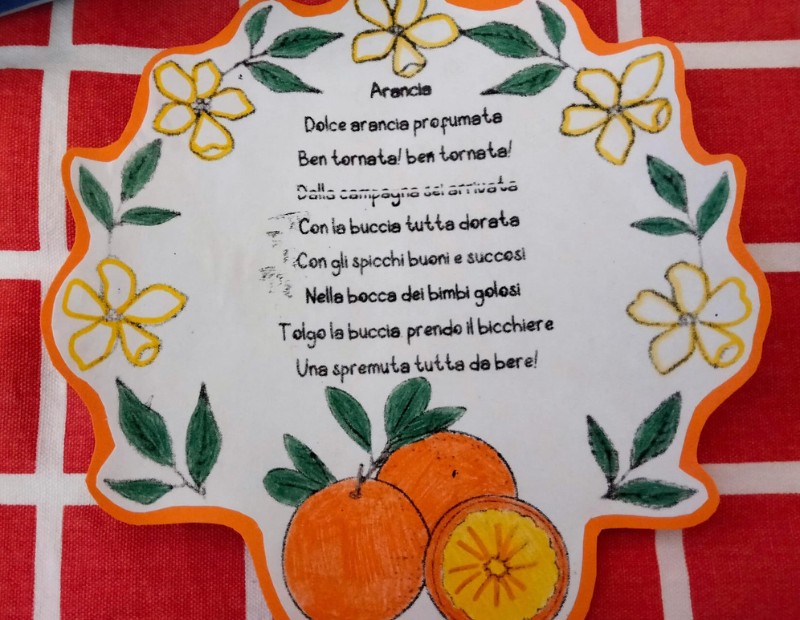 Arancia
Dolce arancia profumata
Ben tornata! ben tornata!
Dalla campagna sei arrivata
Con la buccia tutta dorata
Con gli spicchi buoni e succosi
Nella bocca dei bimbi golosi
Tolgo la buccia prendo il bicchiere
Una spremuta tutta da bere!